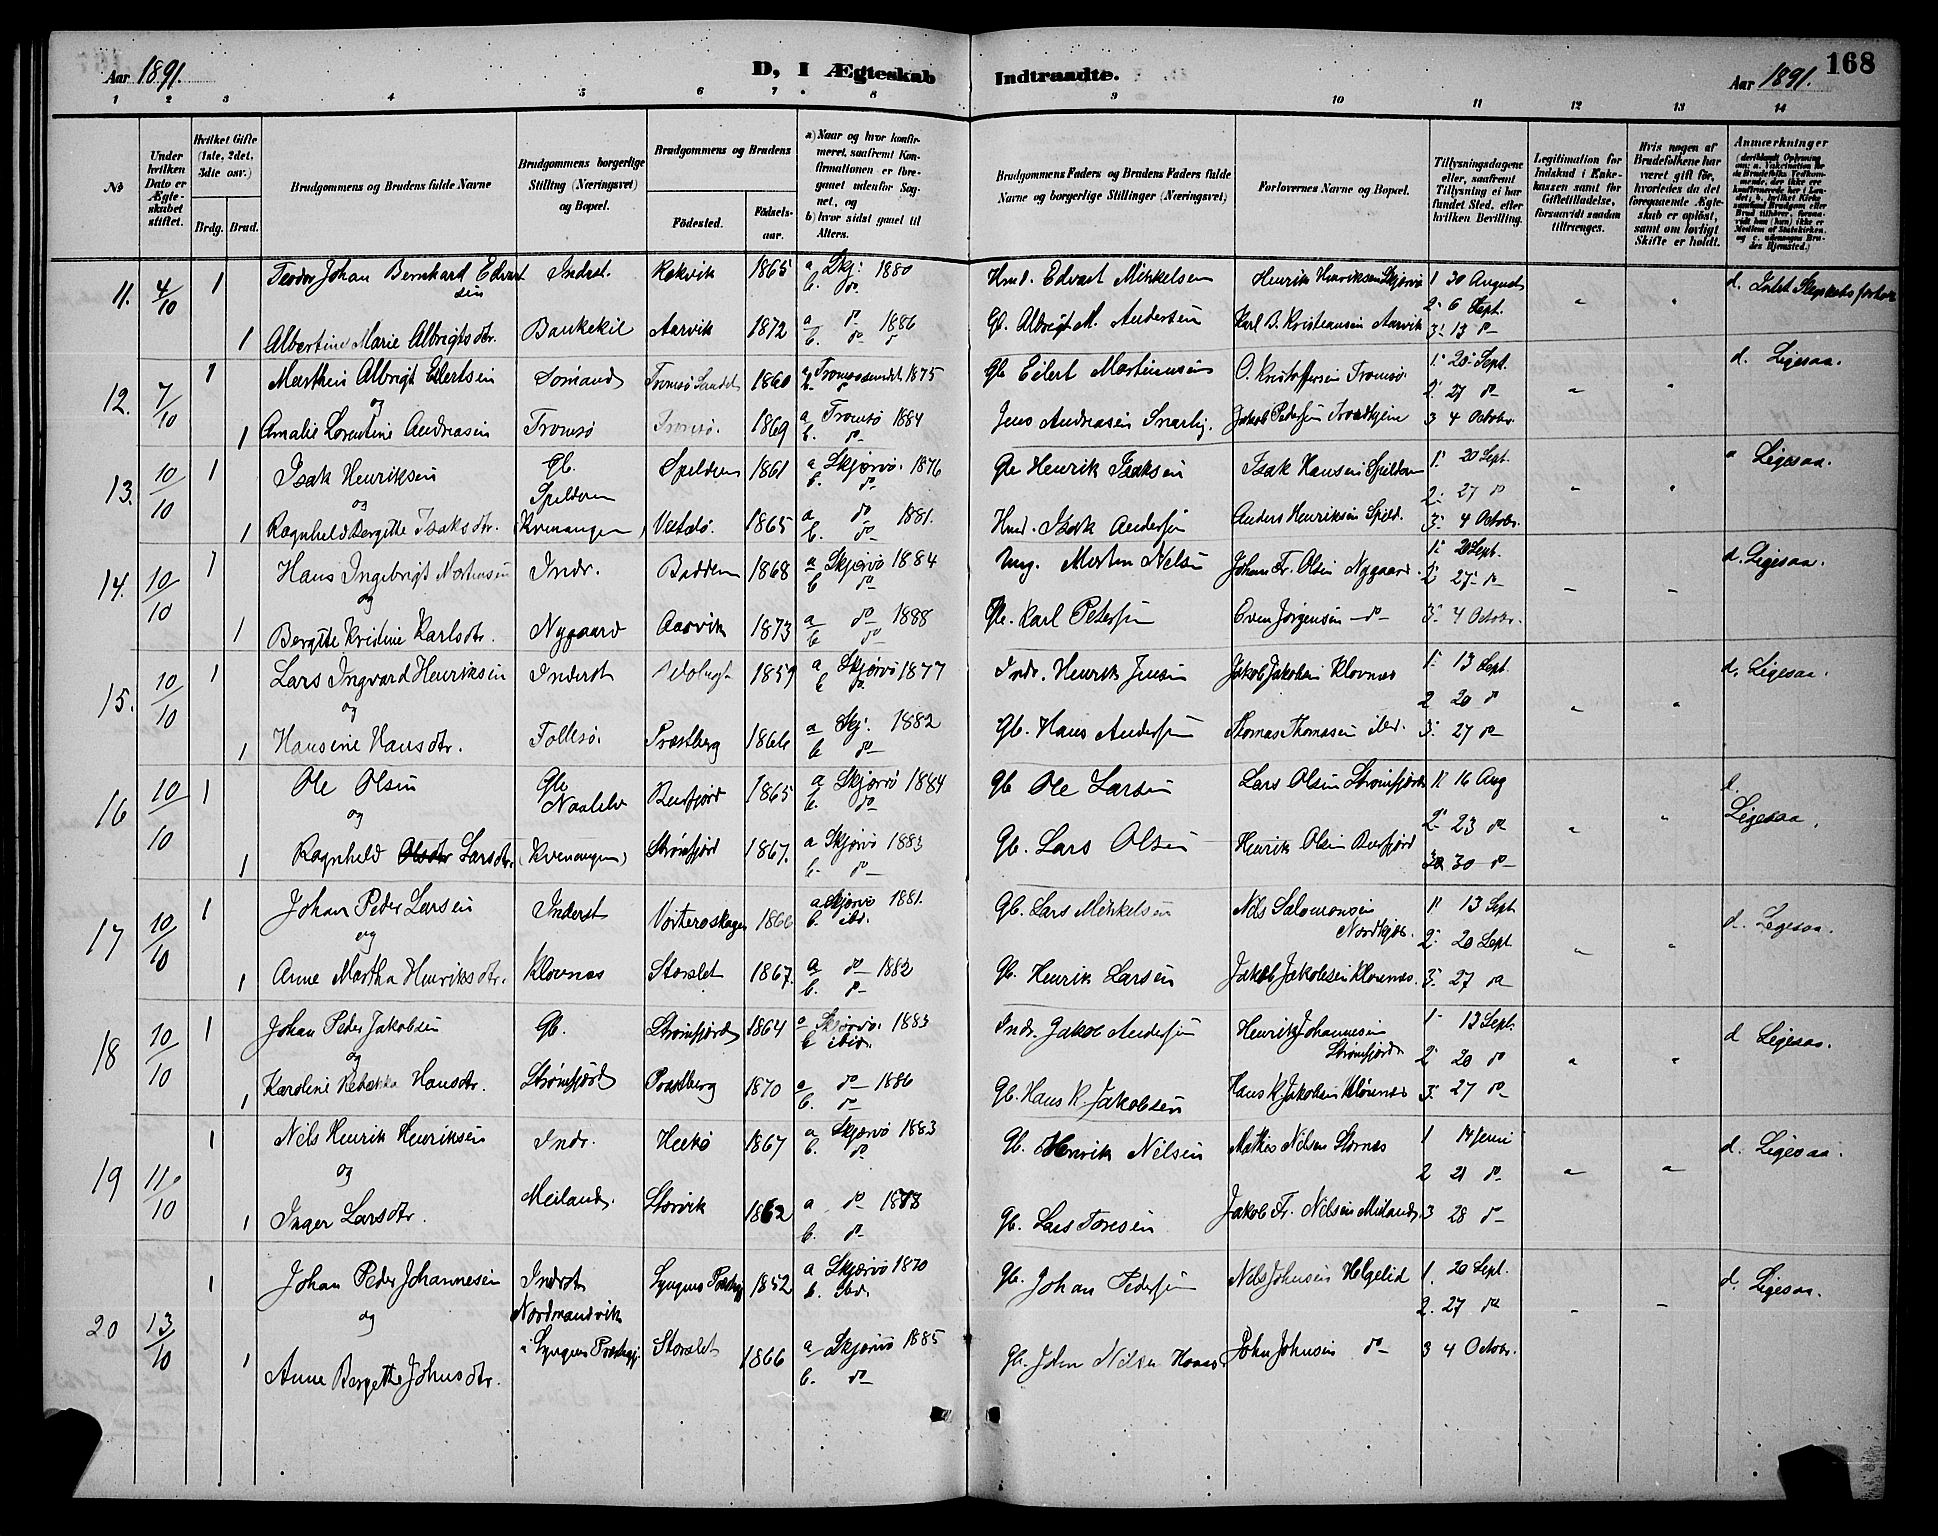 Aar 1891.
D, I Ægteskab Indtraadte.
Aar 1891.
168
1 2 3 4 5 6 7 8 9 10 11 12 13 14
No
Under hvilken Dato er Ægteskabet stiftet.
Hvilket Gifte (1ste, 2det, 3die osv.)
Brdg. Brud.
Brudgommens og Brudens fulde Navne
Brudgommens borgerlige Stilling (Næringsvei) og Bopæl.
Brudgommens og Brudens
Fødested.
Fødsels-aar.
a) Naar og hvor konfirmeret, saafremt Konfirmationen er foregaaet udenfor Sognet, og
b) hvor sidst gaaet til Alters.
Brudgommens Faders og Brudens Faders fulde Navne og borgerlige Stillinger (Næringsvei)
Forlovernes Navne og Bopæl.
Tillysningsdagene eller, saafremt Tillysning ei har fundet Sted, efter hvilken Bevilling.
Legitimation for Indskud i Enkekassen samt for Giftetilladelse, forsaavidt saadan tiltrænges.
Hvis nogen af Brudefolkene har været gift før, hvorledes da det foregaaende Ægteskab er opløst, samt om lovligt Skifte er holdt.
Anmærkninger
11. 4/10 1 Teodor Johan Bernhard Edvartsen Inderst. Rekvik 1865 a Skj: 1880 b. do. Hmd. Edvart Mikkelsen Henrik Henriksen Skjervø 1 30 August d. Intet Slegtskabsforhold
2. 6 Sept.
1 Albertine Marie Albrigtsdtr. Baukekil Aarvik 1872 a do 1886 b. do Gb. Albrigt M. Andersen Karl B. Kristiansen Aarvik 3. 13 do
12. 7/10 1 Marthin Albrigt Eilertsen Sømand Tromsø Sundet 1860 a Tromsøsundet 1875 Gb Eilert Martinusen O. Kristoffersen Tromsø 1. 20 Sept. d. Ligesaa.
og 2. 27 do
1 Amalie Lorentine Andreasen Tromsø Tromsø. 1869 a Tromsø 1884 b. do Jens Andreasen Snarby. Jakob Pedersen Trondhjem 3 4 Octobr.
13. 10/10 1 Isak Henriksen Gb. Spildren Spildren 1861 a Skjervø. 1876 b. do Gb Henrik Isaksen Isak Hansen Spildren 1. 20 Sept. Ligesaa.
og 2. 27 do
1 Ragnhild Bergitte Isaksdtr. (Kvenangen) 1865 a do 1881. b. do Hmd. Isak Andersen Anders Henriksen Spild. 3. 4 Octobr.
14. 10/10 1 Hans Ingebrigt Mortensen Indr. Badderen 1868 a Skjervø 1884 b do Ung. Morten Nelsen Johan Fr. Olsen Nygaard. 1. 20 Sept. d. Ligesaa.
og 2 27 do
1 Bergitte Kristine Karlsdtr. Nygaard Aarvik 1873 a do 1888 b do Gb. Karl Petersen Even Jørgensen do 3. 4 Octobr.
15. 10/10 1 Lars Ingvard Henriksen Inderst 1859 a Skjervø 1877 b do. Indr. Henrik Jensen Jakob Jakobsen Klovnes 1. 13 Sept. d. Ligesaa.
og 2 20 do
1 Hansine Hansdtr. Follesø. Præstberg 1866 a Skj: 1882 b do Gb. Hans Andersen Thomas Thomasen ibid. 3. 27 do
16 10/10 1 Ole Olsen Gb Naalelv Burfjord 1865 a Skjervø 1884 b. do Gb Ole Larsen Lars Olsen Strømfjord 1. 16 Aug d. Ligesaa.
og 2. 23 do
1 Ragnhild Olsdtr Larsdtr. (Kvenangen) Strømfjord 1867. a Skjervø 1883 b. do Gb. Lars Olsen Henrik Olsen Burfjord 3. 30 do
17 10/10 1 Johan Peder Larsen Inderst Vorteroskagen 1866 a Skjervø 1881. b. ibd. Gb. Lars Mikkelsen Nils Salomonsen 1. 13 Sept d. Ligesaa.
og 2. 20 Sept
1 Anne Martha Henriksdtr. Klovnes Storslet 1867. a do 1882 b. do Gb. Henrik Larsen Jakob Jakobsen Klovenes. 3. 27 do
18 10/10 1 Johan Peder Jakobsen Gb. Strømfjord 1864 a Skjervø. 1883 b ibid. Indr. Jakob Andersen Henrik Johannesen Strømfjord 1. 13 Sept. d Ligesaa.
og 2. 20 do
1 Karoline Rebekka Hansdtr. Strømfjord Præstberg 1870 a do 1886 b. do Gb. Hans R. Jakobsen Hans R. Jakobsen Klovenes 3. 27 do
19 11/10 1 Nils Henrik Henriksen Indr. Hekø 1867 a Skjervø 1883 b. do Gb. Henrik Nilsen Mathis Nilsen Stornes 1 14 Juni d. Ligesaa.
og 2 21 do
1 Inger Larsdtr. Meiland. Storvik 1862 a do 1878 b. do Gb. Lars Toresen Jakob Fr. Nilsen Meiland 3 28 do
20 13/10 1 Johan Peder Johannesen Inderst Nordmandvik Lyngens Præstegj 1852 a Skjervø 1870 b. ibid. Gb. Johan Pedersen Nels Johnsen Helgelid 1. 20 Sept. d. Ligesaa.
og 2. 27 do
1 Anne Bergette Johnsdtr. i Lyngens Præstegj Storslet 1866 a Skjervø 1885 b. do Gb. John Nilsen John Johnsen do 3 4 Octobr.